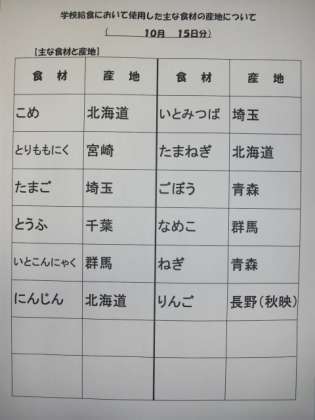 学校給食において使用した主な食材の産地について
(　　10月　15日分)
【主な食材と産地】
食材　産地　食材　産地
こめ　北海道　いとみつば　埼玉
とりももにく　宮崎　たまねぎ　北海道
たまご　埼玉　ごぼう　青森
とうふ　千葉　なめこ　群馬
いとこんにゃく　群馬　ねぎ　青森
にんじん　北海道　りんご　長野(秋映)